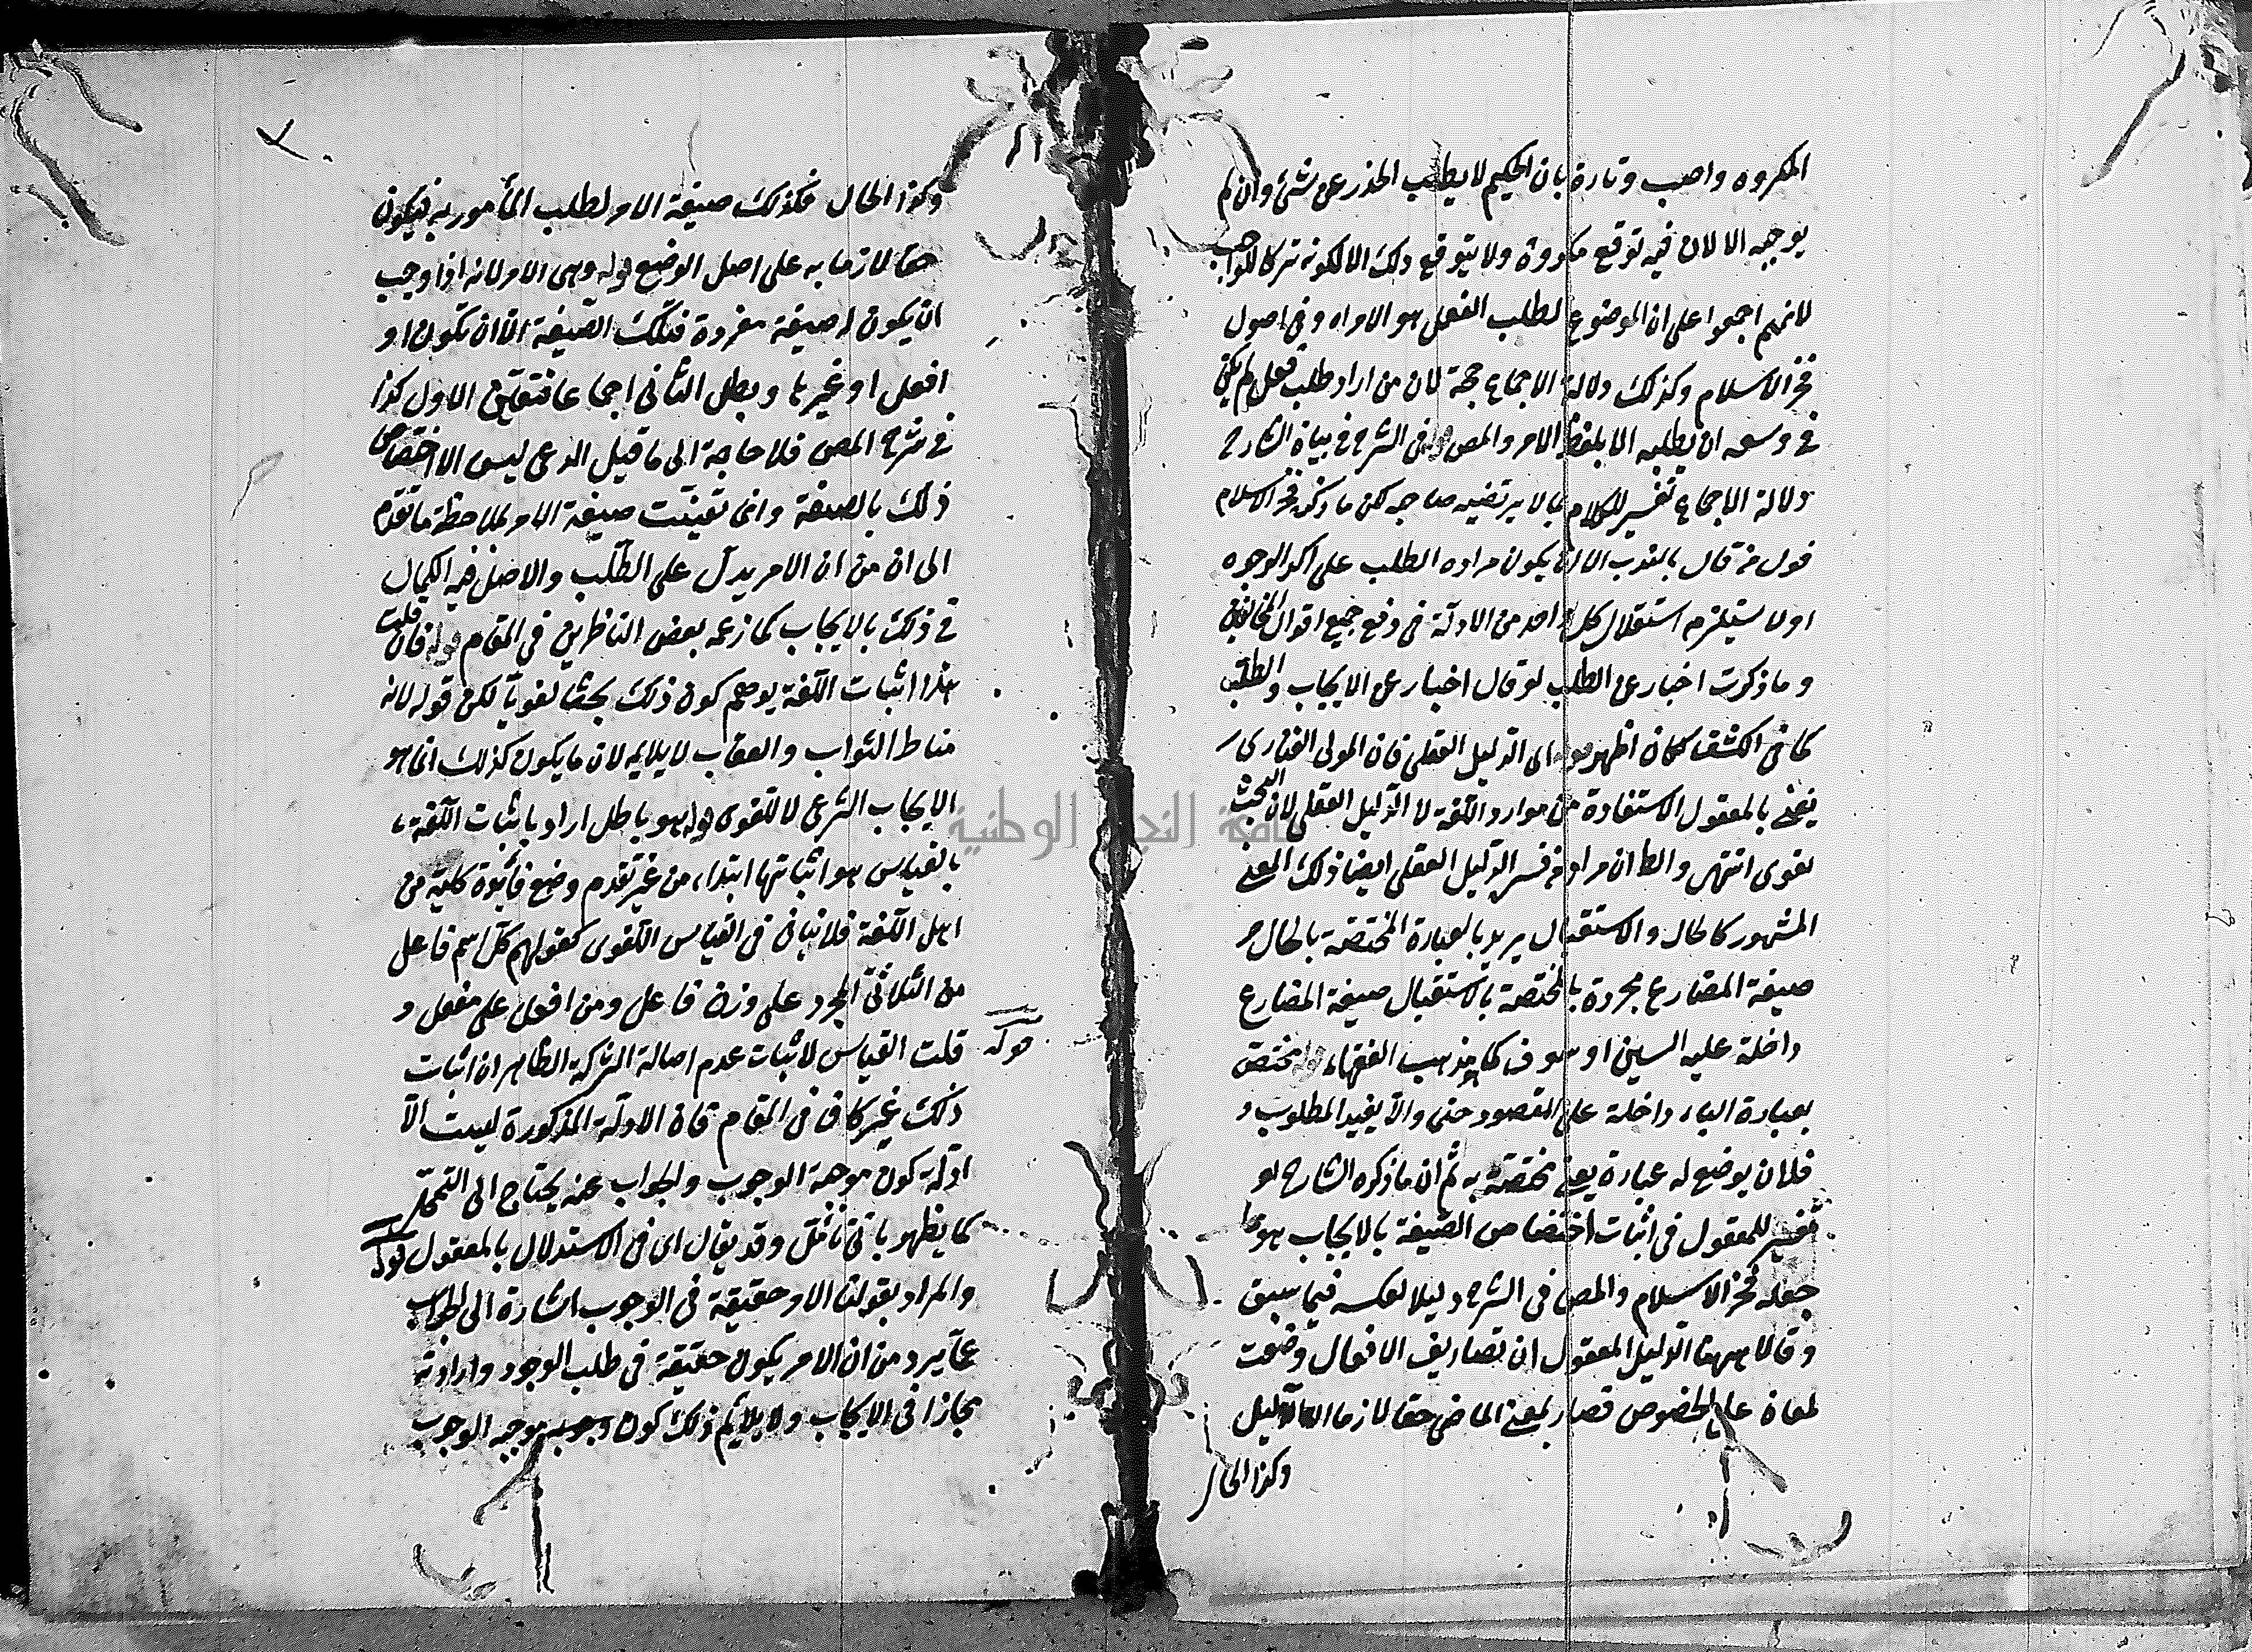 المكروه واصب وتارة بان الحكيم لا يطلب الحذر عن شئ وان لم
يوجبه الا لان فيه توقع مكروه ولا يتوقع ذلك الا لكونه تركا للواجب
لانهم اجمعوا على ان الموضوع لطلب الفعل هو الامر اه وفي اصول
فخر الاسلام وكذلك دلالة الاجماع حجة لان من اراد طلب فعل لم يكن
في وسعه ان يطلبه الا بلفظ الامر والمص في الشرح في بيان الشارح
دلالة الاجماع تفسير للكلام بما لا يرتضيه صاحبه لكن ما ذكره فخر الاسلام
قول من قال بالندب الا ان يكون مراده الطلب على اكد الوجوه
اولا ستلزم استقلال كل واحد من الادلة في دفع جميع اقوال المخالفين
وما ذكرت اخبار عن الطلب لو قال اخبار عن الايجاب والطلب
كما في الكشف لكان اظهر قوله اى الدليل العقلى فان المولى الفنارى
يعنى بالمعقول الاستفادة من موارد اللغة لا الدليل العقلى لان البحث
لغوى انتهى والظ ان مراد من فسر الدليل العقلى ايضا ذلك المعنى
المشهور كالحال والاستقبال يريد بالعبارة المختصة بالحال
صيغة المضارع مجردة بالمختصة بالاستقبال صيغة المضارع
داخلة عليه السين او سوف كما هو مذهب الفقهاء قوله مختص
بعبارة الباء داخلة على المقصود حتى والا يفيد المطلوب و
فلان يوضع له عبارة يعنى مختصة به ثم ان ما ذكره الشارح لو
تفسير للمعقول في اثبات اختصاص الصيغة بالايجاب هو ما
جعله فخر الاسلام والمص في الشرح دليلا لعكسه فيما سبق
وقالا ههنا الدليل المعقول ان تصاريف الافعال وضعت
لمعان على الخصوص فصار لمعنى الماضى حقا لازما الا بدليل
وكذا الحال
وكذا الحال فكذلك صيغة الامر لطلب المأمور به فيكون
حقا لازما به على اصل الوضع قوله وهى الامر لانه اذا وجب
ان يكون له صيغة مفردة فتلك الصيغة اما ان تكون او
افعل او غيرها وبطل الثانى اجماعا فتعين الاول كذا
في شرح المص فلا حاجة الى ما قيل المدعى ليس الا اختصاص
ذلك بالصيغة وانما تعينت صيغة الامر لملاحظة ما تقدم
الى ان من ان الامر يدل على الطلب والاصل فيه الكمال
في ذلك بالايجاب كما زعمه بعض الناظرين في المقام قوله فان قلت
هذا اثبات اللغة يوهم كون ذلك بحثا لغويا لكن قوله لانه
مناط الثواب والعقاب لا يلايمه لان ما يكون كذلك انما هو
الايجاب الشرعى لا اللغوى قوله هو باطل اراد باثبات اللغة
بالقياس هو اثباتها ابتداء من غير تقدم وضع قاعدة كلية من
اهل اللغة فلا ينافى القياس اللغوى كقولهم كل اسم فاعل
من الثلاثى المجرد على وزن فاعل ومن افعل على مفعل و
قوله قلت القياس لاثبات عدم اصالة الشركة الظاهر ان اثبات
ذلك غير كاف في المقام فان الادلة المذكورة ليست الا
ادلة كون موجبه الوجوب والجواب عنه يحتاج الى التمحل
كما يظهر بادنى تأمل وقد يقال اى في الاستدلال بالمعقول قوله
والمراد بقولنا الامر حقيقة في الوجوب اشارة الى الجواب
عما يرد من ان الامر يكون حقيقة في طلب الوجود وارادته
مجازا في الايجاب ولا يلايم ذلك كون موجبه الوجوب